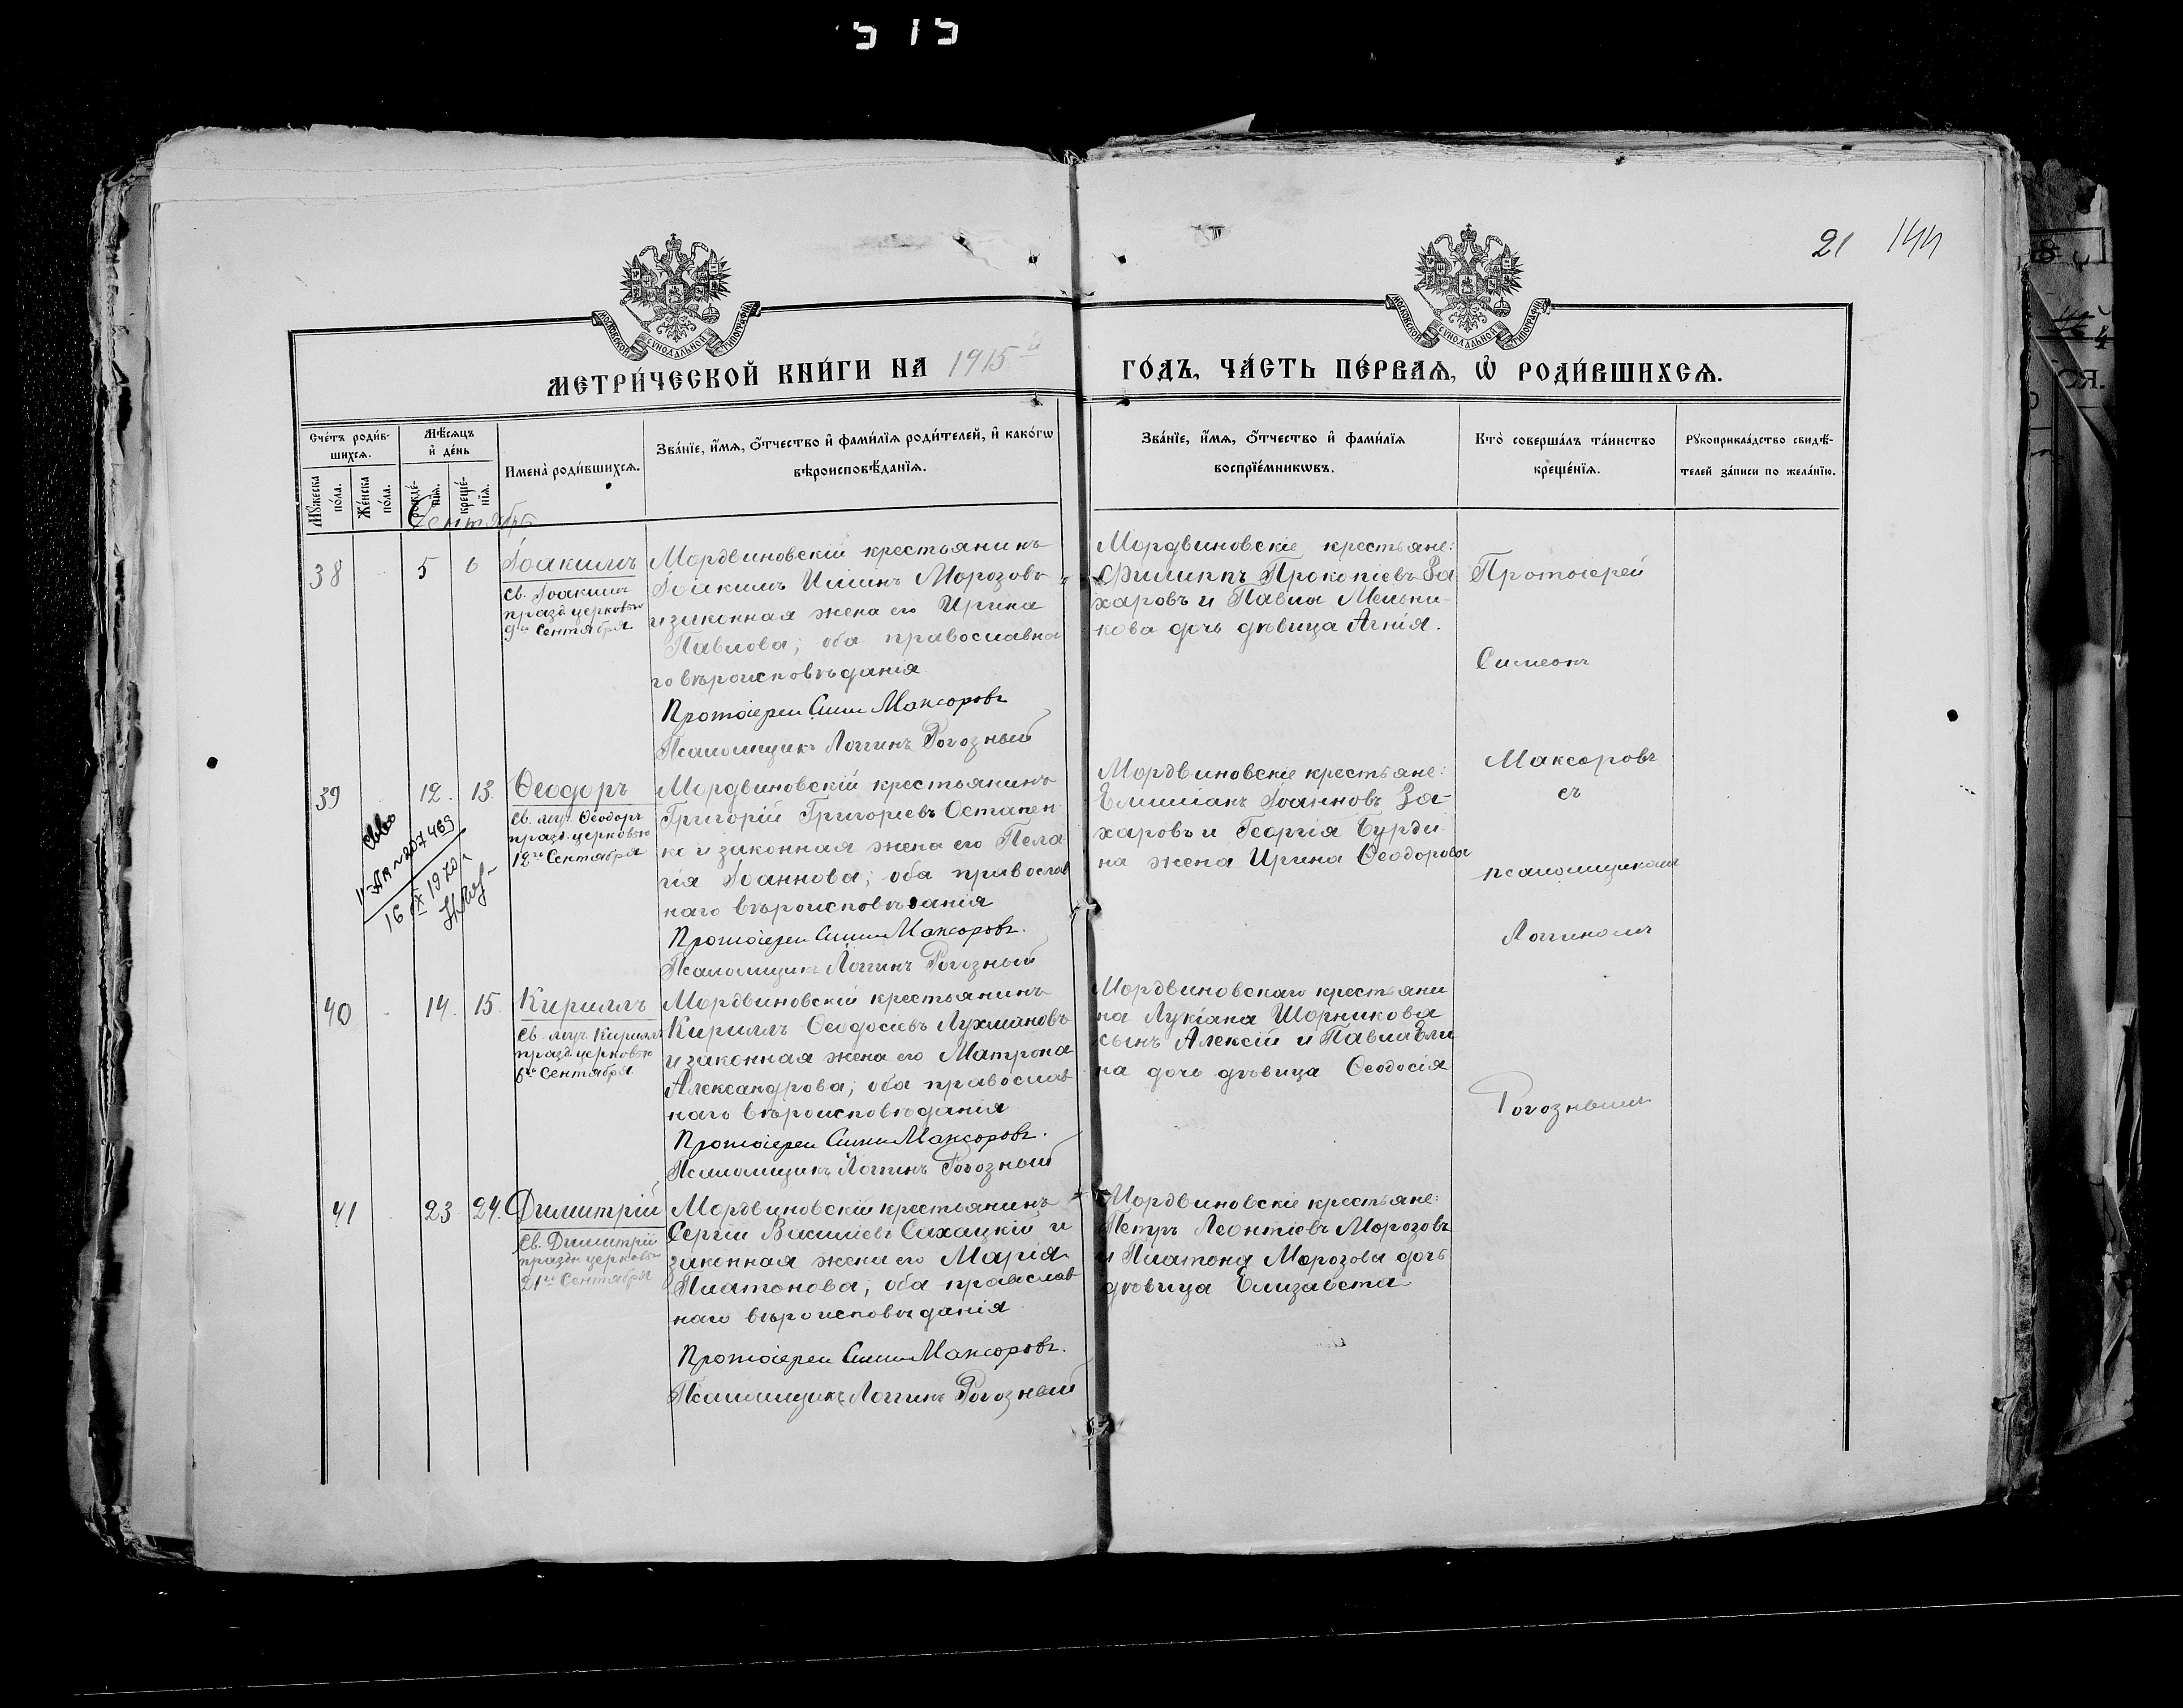 515
21 144
МОСКОВСКОЙ СѴНОДАЛЬНОЙ ТИПОГРАФІИ
МОСКОВСКОЙ СѴНОДАЛЬНОЙ ТИПОГРАФІИ
МЕТРИ́ЧЕСКОЙ КНИ́ГИ НА 1915 й
ГО́ДЪ, ЧА́СТЬ ПЕ́РВАѦ, Ѡ҆ РОДИ́ВШИХСѦ.
Сче́тъ роди́в-
шихсѧ.
Мѣ́сѧцъ
и҆ де́нь
Мꙋ́жеска по́ла.
Же́нска по́ла.
рожде́-нїѧ.
креще́-нїѧ.
Имена̀ роди́вшихсѧ.
Зва́нїе, и҆́мѧ, ѻ҆́тчество и҆ фами́лїѧ роди́телей, и҆ како́гѡ
вѣроисповѣ́данїѧ.
Зва́нїе, и҆́мѧ, ѻ҆́тчество и҆ фами́лїѧ
воспрїе́мникѡвъ.
Кто̀ соверша́лъ та́инство
креще́нїѧ.
Рꙋкоприкла́дство свидѣ́-
телей за́писи по жела́нїю.
Сентябрь
38 5 6
Іоакимъ
Св. Іоакимъ
празд. церковью
9го Сентября
Мордвиновскій крестьянинъ
Іоакимъ Илiинъ Морозовъ
и законная жена его Ирина
Павлова; оба православна
го вѣроисповѣданія
Протоіерей Симе Максоровъ
Псаломщикъ Логгинъ Рогозный
Мордвиновскіе крестьяне:
Филиппъ Прокопіевъ За
харовъ и Павла Мельни-
кова дочь дѣвица Агнія.
Протоіерей
Симеонъ
Максоровъ
съ
псаломщикомъ
Логгиномъ
Рогознымъ
39 12. 13.
IIАя № 207469
16 X 1970 г
Ѳеодоръ
Св. муч. Ѳеодоръ
празд. церковью
12го Сентября
Мордвиновскій крестьянинъ
Григорій Григоріевъ Остапен-
ко и законная жена его Пела
гія Іоаннова; оба православ
наго вѣроисповѣданія
Протоіерей Симе Максоровъ.
Псаломщикъ Логгинъ Рогозный
Мордвиновскіе крестьяне:
Емиліанъ Іоанновъ За-
харовъ и Георгія Бурди-
на жена Ирина Ѳеодорова
40 14. 15.
Кириллъ
Св. муч. Кириллъ
празд. церковью
6го Сентября.
Мордвиновскій крестьянинъ
Кириллъ Ѳеодосіевъ Лухмановъ
и законная жена его Матрона
Александрова; оба православ
наго вѣроисповѣданія
Протоіерей Симе Максоровъ.
Псаломщикъ Логгинъ Рогозный
Мордвиновскаго крестьяни
на Лукіана Шорникова
сынъ Алексій и Павла Ели
на дочь дѣвица Ѳеодосія
41 23 24.
Димитрій
Св. Димитрій
праздн. церковью
21го Сентября
Мордвиновскій крестьянинъ
Сергій Василіевъ Сахацкій и
законная жена его Марія
Платонова; оба православ
наго вѣроисповѣданія
Протоіерей Симе Максоровъ.
Псаломщикъ Логгинъ Рогозный
Мордвиновскіе крестьяне:
Петръ Леонтіевъ Морозовъ
и Платона Морозова дочь
дѣвица Елизавета